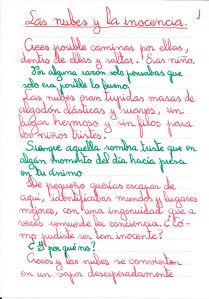 Las nubes y la inocencia.
Crees posible caminar por ellas,
dentro de ellas y saltar. Eras niño.
Por alguna razón solo pensabas que
solo era posible lo bueno.
Las nubes eran tupidas masas de
algodón elásticas y suaves, un
lugar hermoso y sin filos para
los niños tristes.
Siempre aquella sombra triste que en
algún momento del día hacía presa
en tu ánimo.
De pequeño querías escapar de
aquí, identificabas mundos y lugares
mejores, con una ingenuidad que a
veces remuerde la conciencia. ¿Có-
mo pudiste ser tan inocente?
¿Y por qué no?
Creces y las nubes se convierten
en un vapor desesperadamente